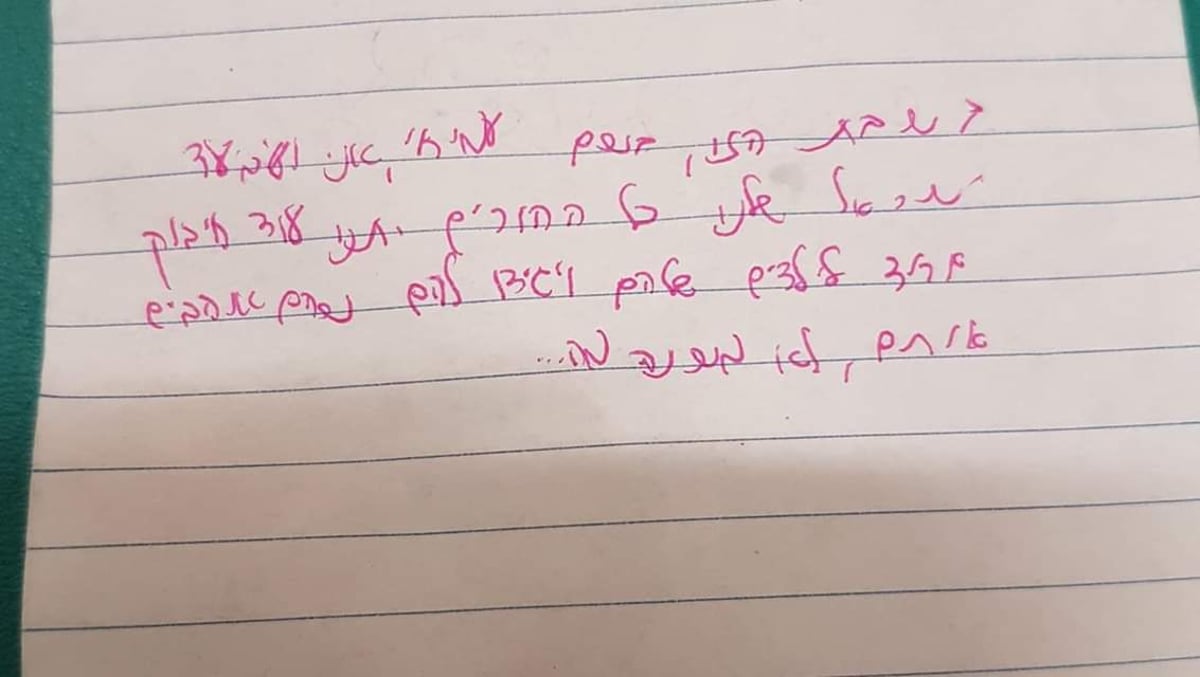 שבת הזו, בשם עמיחי, אני
ישראל שלנו כל ההורים יתנו עוד חיבוק
לילדים שלהם ויגידו להם שהם אוהבים
אותם, לא משנה מה...